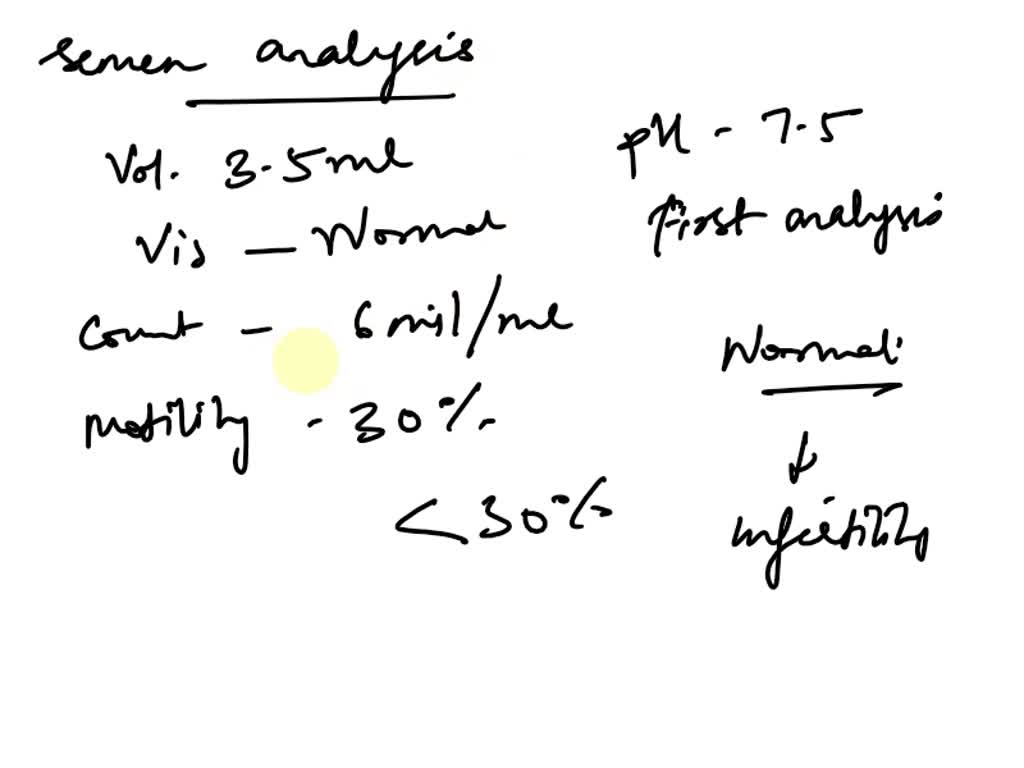 semen analysis
Vol. 3.5ml
Vis — Normal
Count - 6 mil/ml
Motility - 30%
<30%
pH - 7.5
First analysis
Normal
↓
Infertility